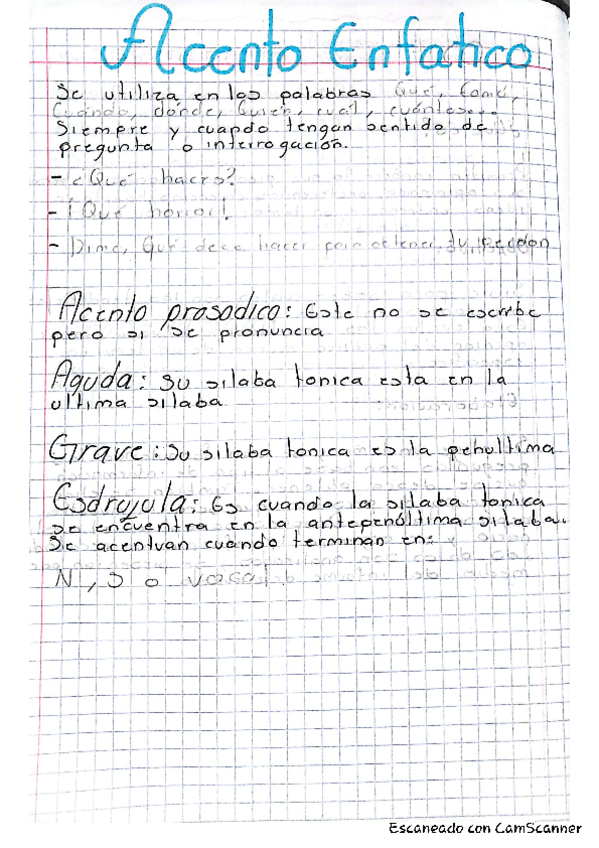 Acento Enfatico
Se utiliza en las palabras Qué, Como,
Cuándo, dónde, Quién, cuál, cuántos...
Siempre y cuando tengan sentido de
pregunta o interrogación.
- ¿Qué haces?
- ¡Qué horror!
- Dime, Qué debo hacer para obtener tu perdon
Acento prosodico: Este no se escribe
pero si se pronuncia
Aguda: Su silaba tonica esta en la
ultima silaba
Grave: Su silaba tonica es la penultima
Esdrujula: Es cuando la silaba tonica
se encuentra en la antepenúltima silaba.
Se acentuan cuando terminan en:
N, S o vocal
Escaneado con CamScanner